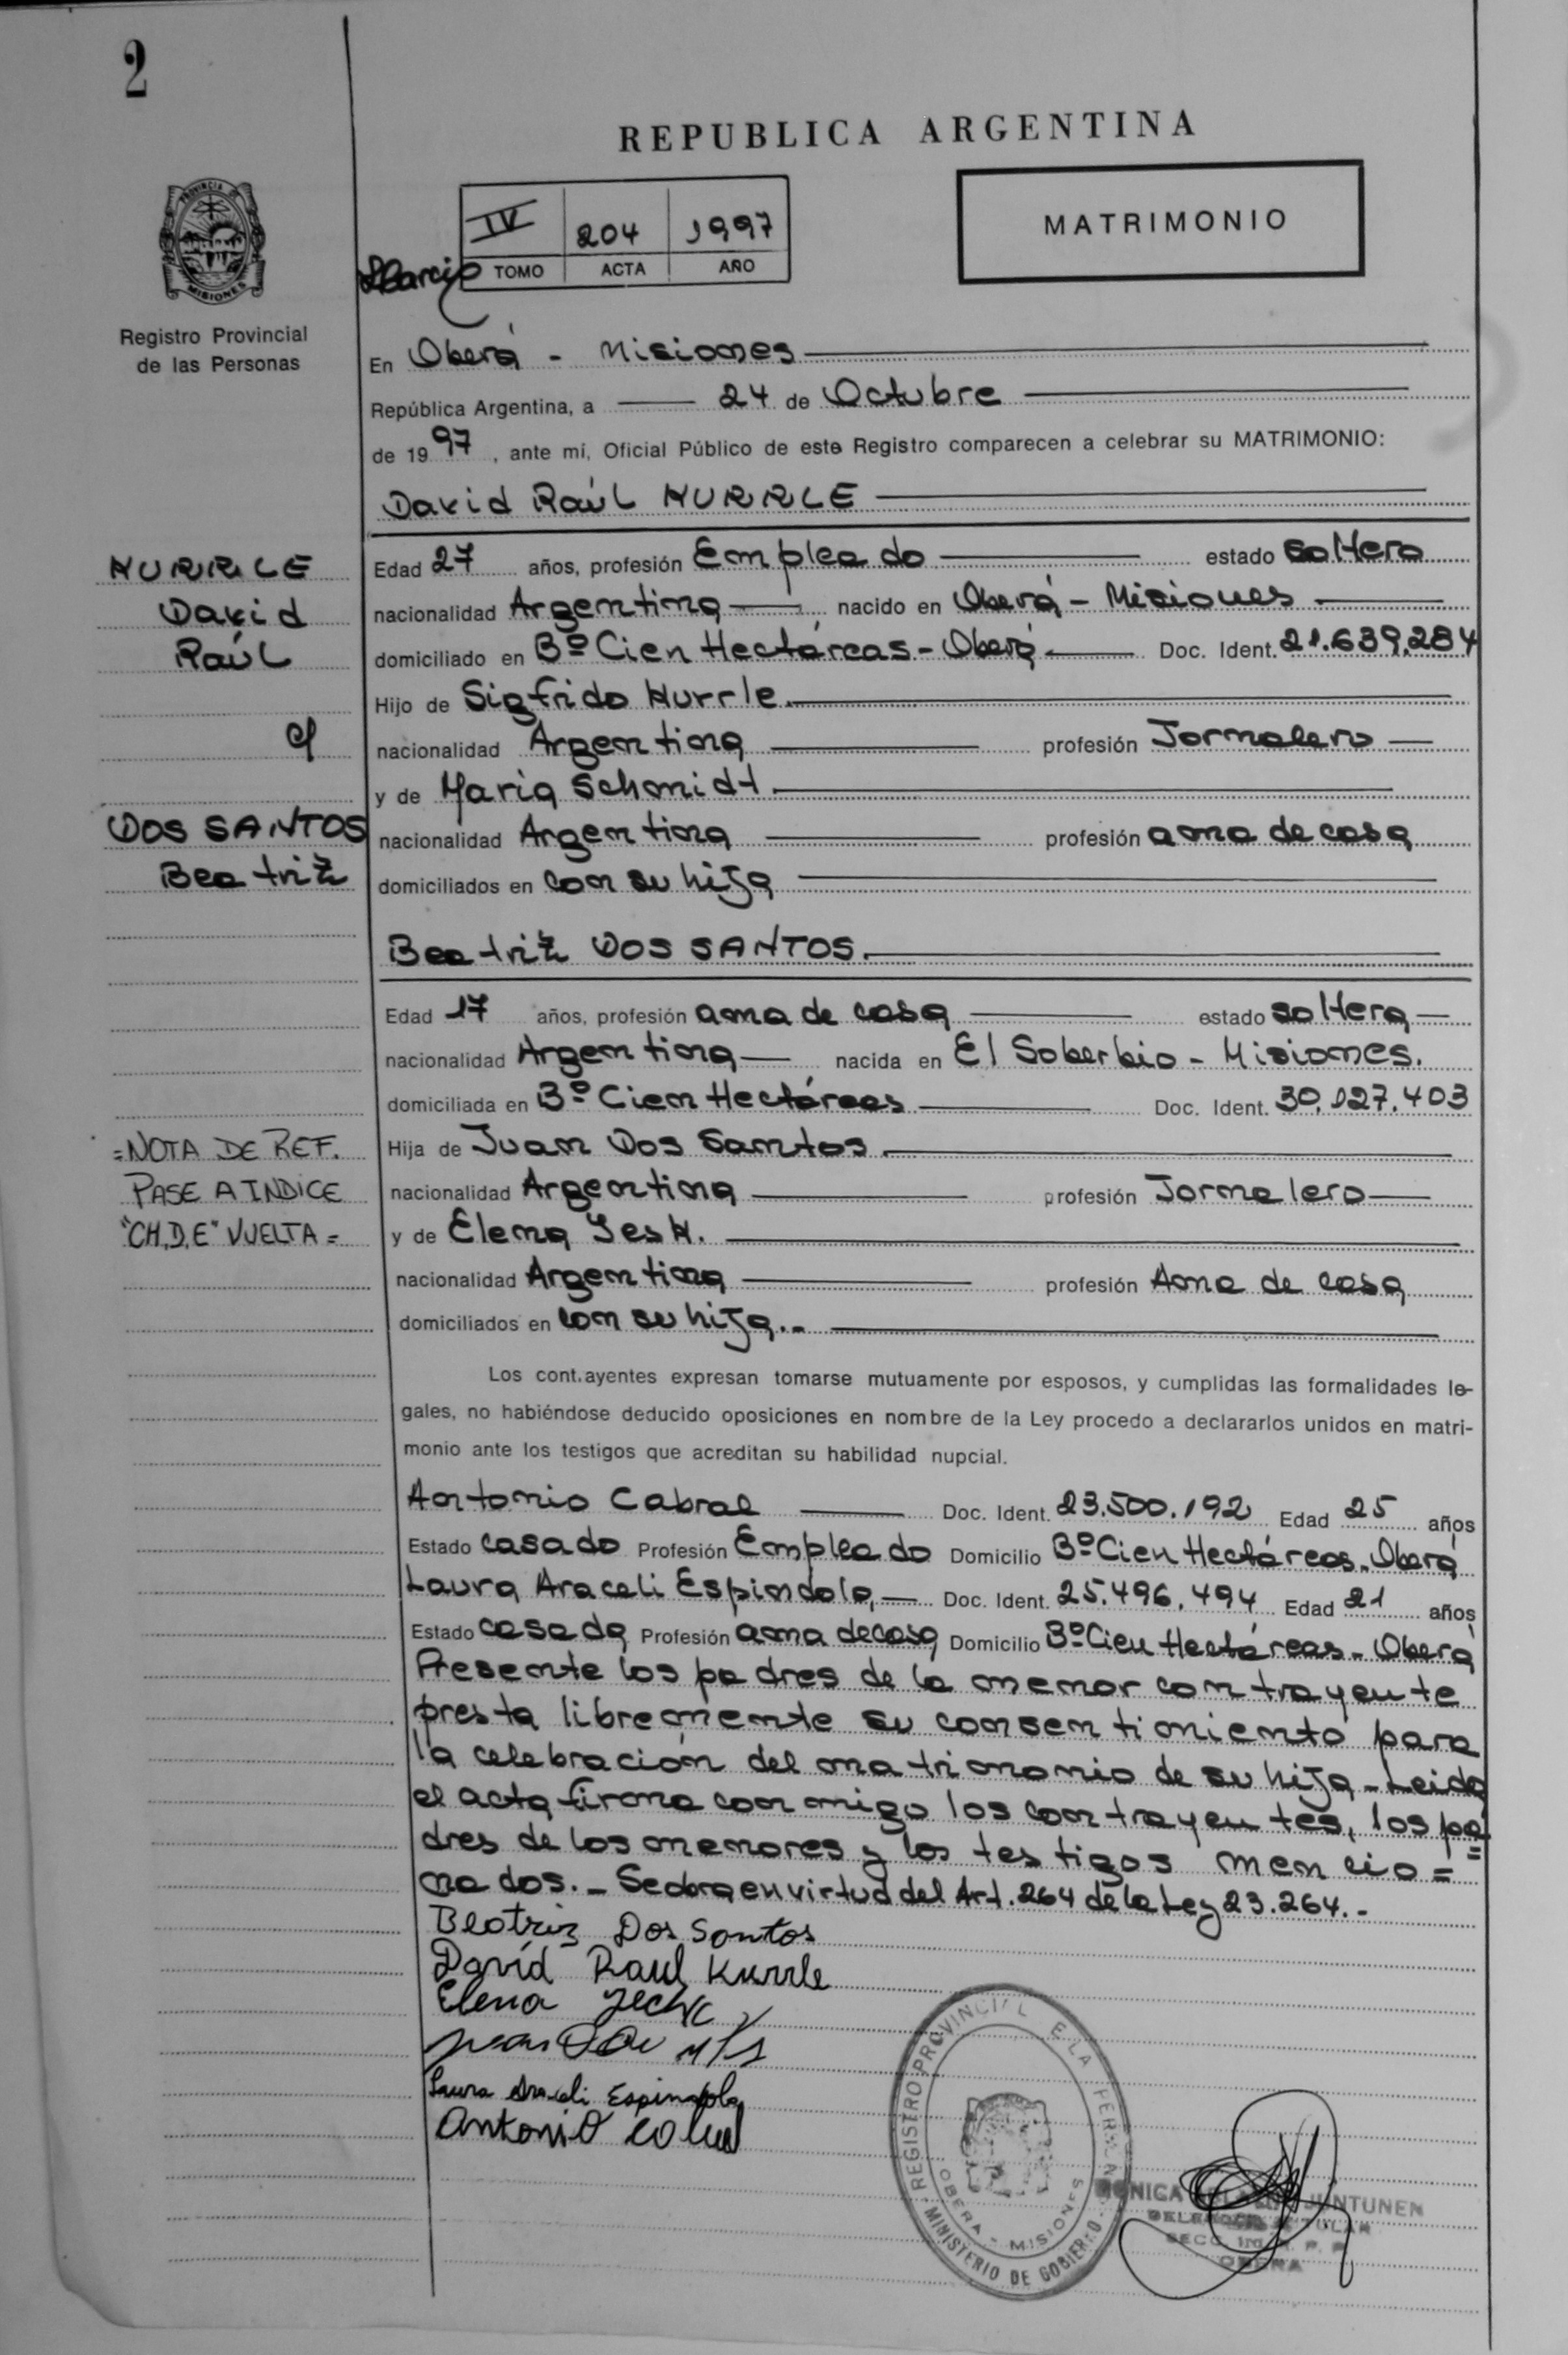 2
REPUBLICA ARGENTINA
PROVINCIA DE
MISIONES
Registro Provincial
de las Personas
IV 204 1997
TOMO ACTA AÑO
MATRIMONIO
En Oberá - Misiones
República Argentina, a 24 de Octubre
de 1997, ante mí, Oficial Público de este Registro comparecen a celebrar su MATRIMONIO:
David Raúl KURRLE
KURRLE
David
Raúl
y
DOS SANTOS
Beatriz
Edad 27 años, profesión Empleado estado soltero
nacionalidad Argentina nacido en Oberá - Misiones
domiciliado en Bº Cien Hectáreas - Oberá Doc. Ident. 21.639.284
Hijo de Sigfrido Kurrle.
nacionalidad Argentina profesión Jornalero
y de María Schmidt.
nacionalidad Argentina profesión ama de casa
domiciliados en con su hija
Beatriz DOS SANTOS.
Edad 17 años, profesión ama de casa estado soltera
nacionalidad Argentina nacida en El Soberbio - Misiones.
domiciliada en Bº Cien Hectáreas Doc. Ident. 30.127.403
=NOTA DE REF.
PASE A INDICE
"CH.D.E" VUELTA=
Hija de Juan Dos Santos.
nacionalidad Argentina profesión Jornalero
y de Elena Yesk.
nacionalidad Argentina profesión Ama de casa
domiciliados en con su hija.-
Los cont.ayentes expresan tomarse mutuamente por esposos, y cumplidas las formalidades le-
gales, no habiéndose deducido oposiciones en nombre de la Ley procedo a declararlos unidos en matri-
monio ante los testigos que acreditan su habilidad nupcial.
Antonio Cabral Doc. Ident. 23.500.192 Edad 25 años
Estado casado Profesión Empleado Domicilio Bº Cien Hectáreas - Oberá
Laura Araceli Espindola, Doc. Ident. 25.496.494 Edad 21 años
Estado casada Profesión ama de casa Domicilio Bº Cien Hectáreas - Oberá
Presente los padres de la menor contrayente
presta libremente su consentimiento para
la celebración del matrimonio de su hija - Leida
el acta firma conmigo los contrayentes, los pa=
dres de los menores y los testigos mencio=
nados.- Se obra en virtud del Art. 264 de la Ley 23.264.-
Beatriz Dos Santos
David Raul Kurrle
Elena
Laura Araceli Espindola
Antonio
REGISTRO PROVINCIAL DE LA PERSONAS
OBERA - MISIONES
MINISTERIO DE GOBIERNO
MONICA JUNTUNEN
DELEGADA TITULAR
SECC. 1ra. R. P. P.
OBERA